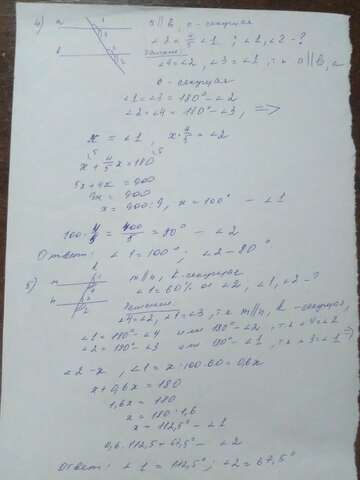 4) a 1 a∥b, c - секущая
b ∠2 = 4/5 ∠1 ; ∠1, ∠2 - ?
Решение
∠4 = ∠2, ∠3 = ∠1, т.к a∥b, а
c - секущая
∠1 = ∠3 = 180° - ∠2
∠2 = ∠4 = 180° - ∠3, =>
x = ∠1, x · 4/5 = ∠2
x + 4/5 x = 180
5x + 4x = 900
9x = 900
x = 900 : 9, x = 100° - ∠1
100 · 4/5 = 400/5 = 80° - ∠2
Ответ: ∠1 = 100° ; ∠2 - 80°
5) m∥n, k - секущая
∠1 = 60% от ∠2, ∠1, ∠2 - ?
Решение
∠4 = ∠2, ∠1 = ∠3, т.к m∥n, k - секущая,
∠1 = 180° - ∠4 или 180° - ∠2, т.к ∠4 = ∠2
∠2 = 180° - ∠3 или 180° - ∠1, т.к ∠3 = ∠1 =>
∠2 - x, ∠1 = x : 100 · 60 = 0,6x
x + 0,6x = 180
1,6x = 180
x = 180 : 1,6
x = 112,5° - ∠1
0,6 · 112,5 = 67,5° - ∠2
Ответ: ∠1 = 112,5° ; ∠2 = 67,5°